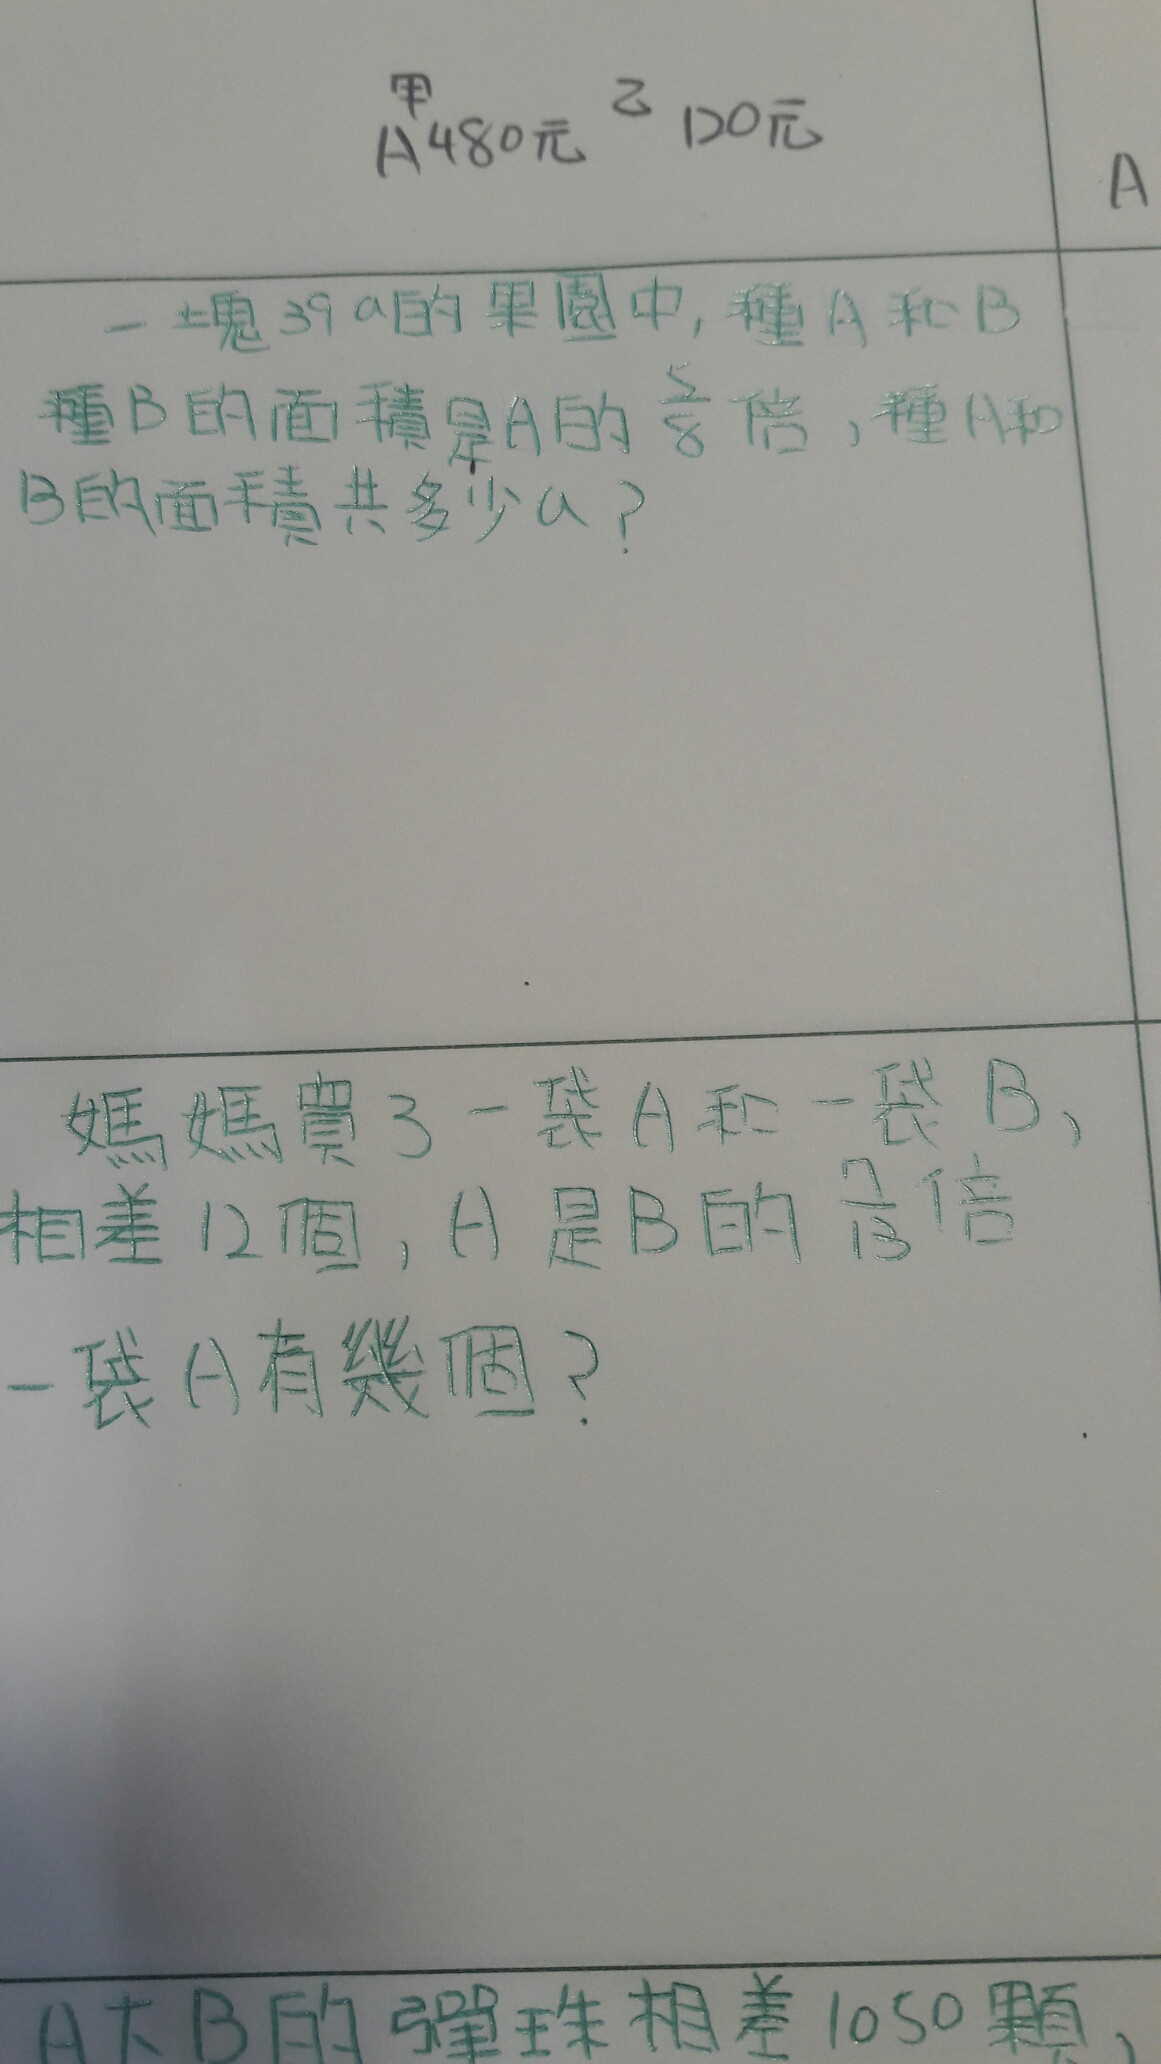 甲 乙
A480元 120元
A
一塊39a的果園中,種A和B
種B的面積是A的5/8倍,種A和
B的面積共多少a?
媽媽買3一袋A和一袋B、
相差12個,A是B的7/13倍
一袋A有幾個?
A大B的彈珠相差1050顆,